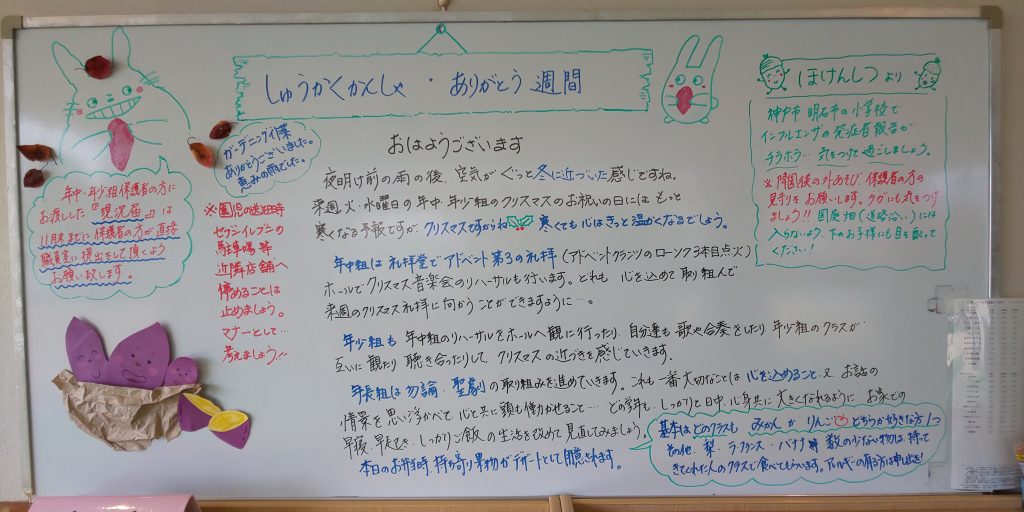 しゅうかくかんしゃ・ありがとう週間
ガーデニング作業
ありがとうございました。
恵みの雨でした。
年中・年少組保護者の方に
お渡しした『現況届』は
11月末までに保護者の方が直接
職員室に提出をして頂くよう
お願い致します。
※園児の送迎時
セブンイレブンの
駐車場等
近隣店舗へ
停めることは
止めましょう。
マナーとして…
考えましょう!!
おはようございます
夜明け前の雨の後、空気がぐっと冬に近づいた感じですね。
来週火・水曜日の年中・年少組のクリスマスのお祝いの日には もっと
寒くなる予報ですが クリスマスですからね 寒くても心はきっと温かくなるでしょう。
年中組は礼拝堂でアドベント第3の礼拝(アドベントクランツのローソク3本目点火)
ホールでクリスマス音楽会のリハーサルも行います。どれも 心を込めて取り組んで
来週のクリスマス礼拝に向かうことができますように…。
年少組も 年中組のリハーサルをホールへ観に行ったり、自分達も歌や合奏をしたり 年少組のクラスが
互いに観たり 聴き合ったりして、クリスマスの近づきを感じていきます。
年長組は勿論、聖劇の取り組みを進めていきます。これも一番大切なことは 心を込めること、又、お話の
情景を思い浮かべて 心と共に頭も働かせること…。どの学年も、しっかりと日中、心身共に大きくなれるように お家での
早寝、早起き、しっかりご飯の生活を改めて見直してみましょう。
本日のお弁当時 持ち寄り果物がデザートとして用意されます。
基本はどのクラスも みかん か りんご どちらか好きな方1つ
その他、梨・ラ・フランス・バナナ等 数の少ない物は、持って
きてくれた人のクラスで食べてもらいます。アレルギーの有る方は申し出を!
ほけんしつより
神戸市 明石市の小学校で
インフルエンザの発症者報告が
チラホラ… 気をつけて過ごしましょう。
※降園後の外あそび 保護者の方の
見守りをお願いします。ケガにも気をつけ
ましょう!! 園庭畑(道路沿い)には
入らないよう、下のお子様にも目を配って
ください!